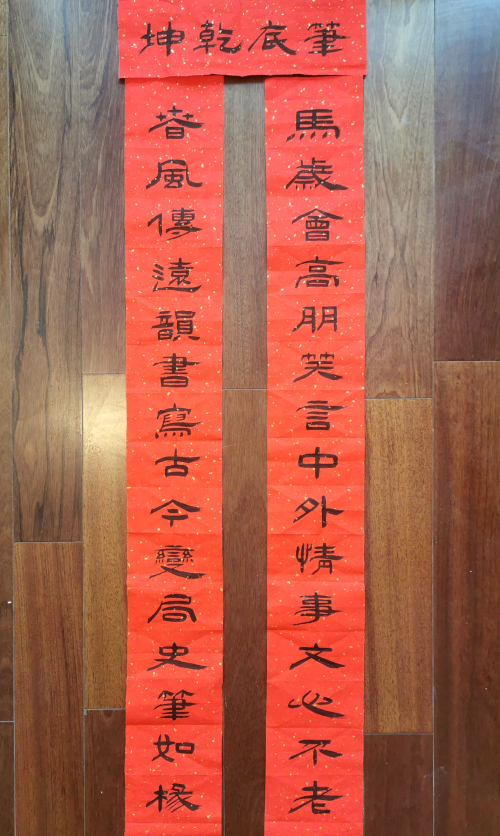 筆底乾坤
馬歲會高朋笑言中外情事文心不老
春風傳遠韻書寫古今變局史筆如椽